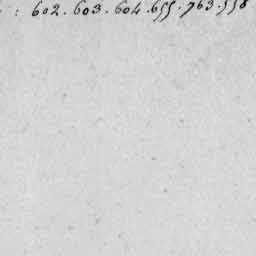 : 602. 603. 604. 655. 763. 558